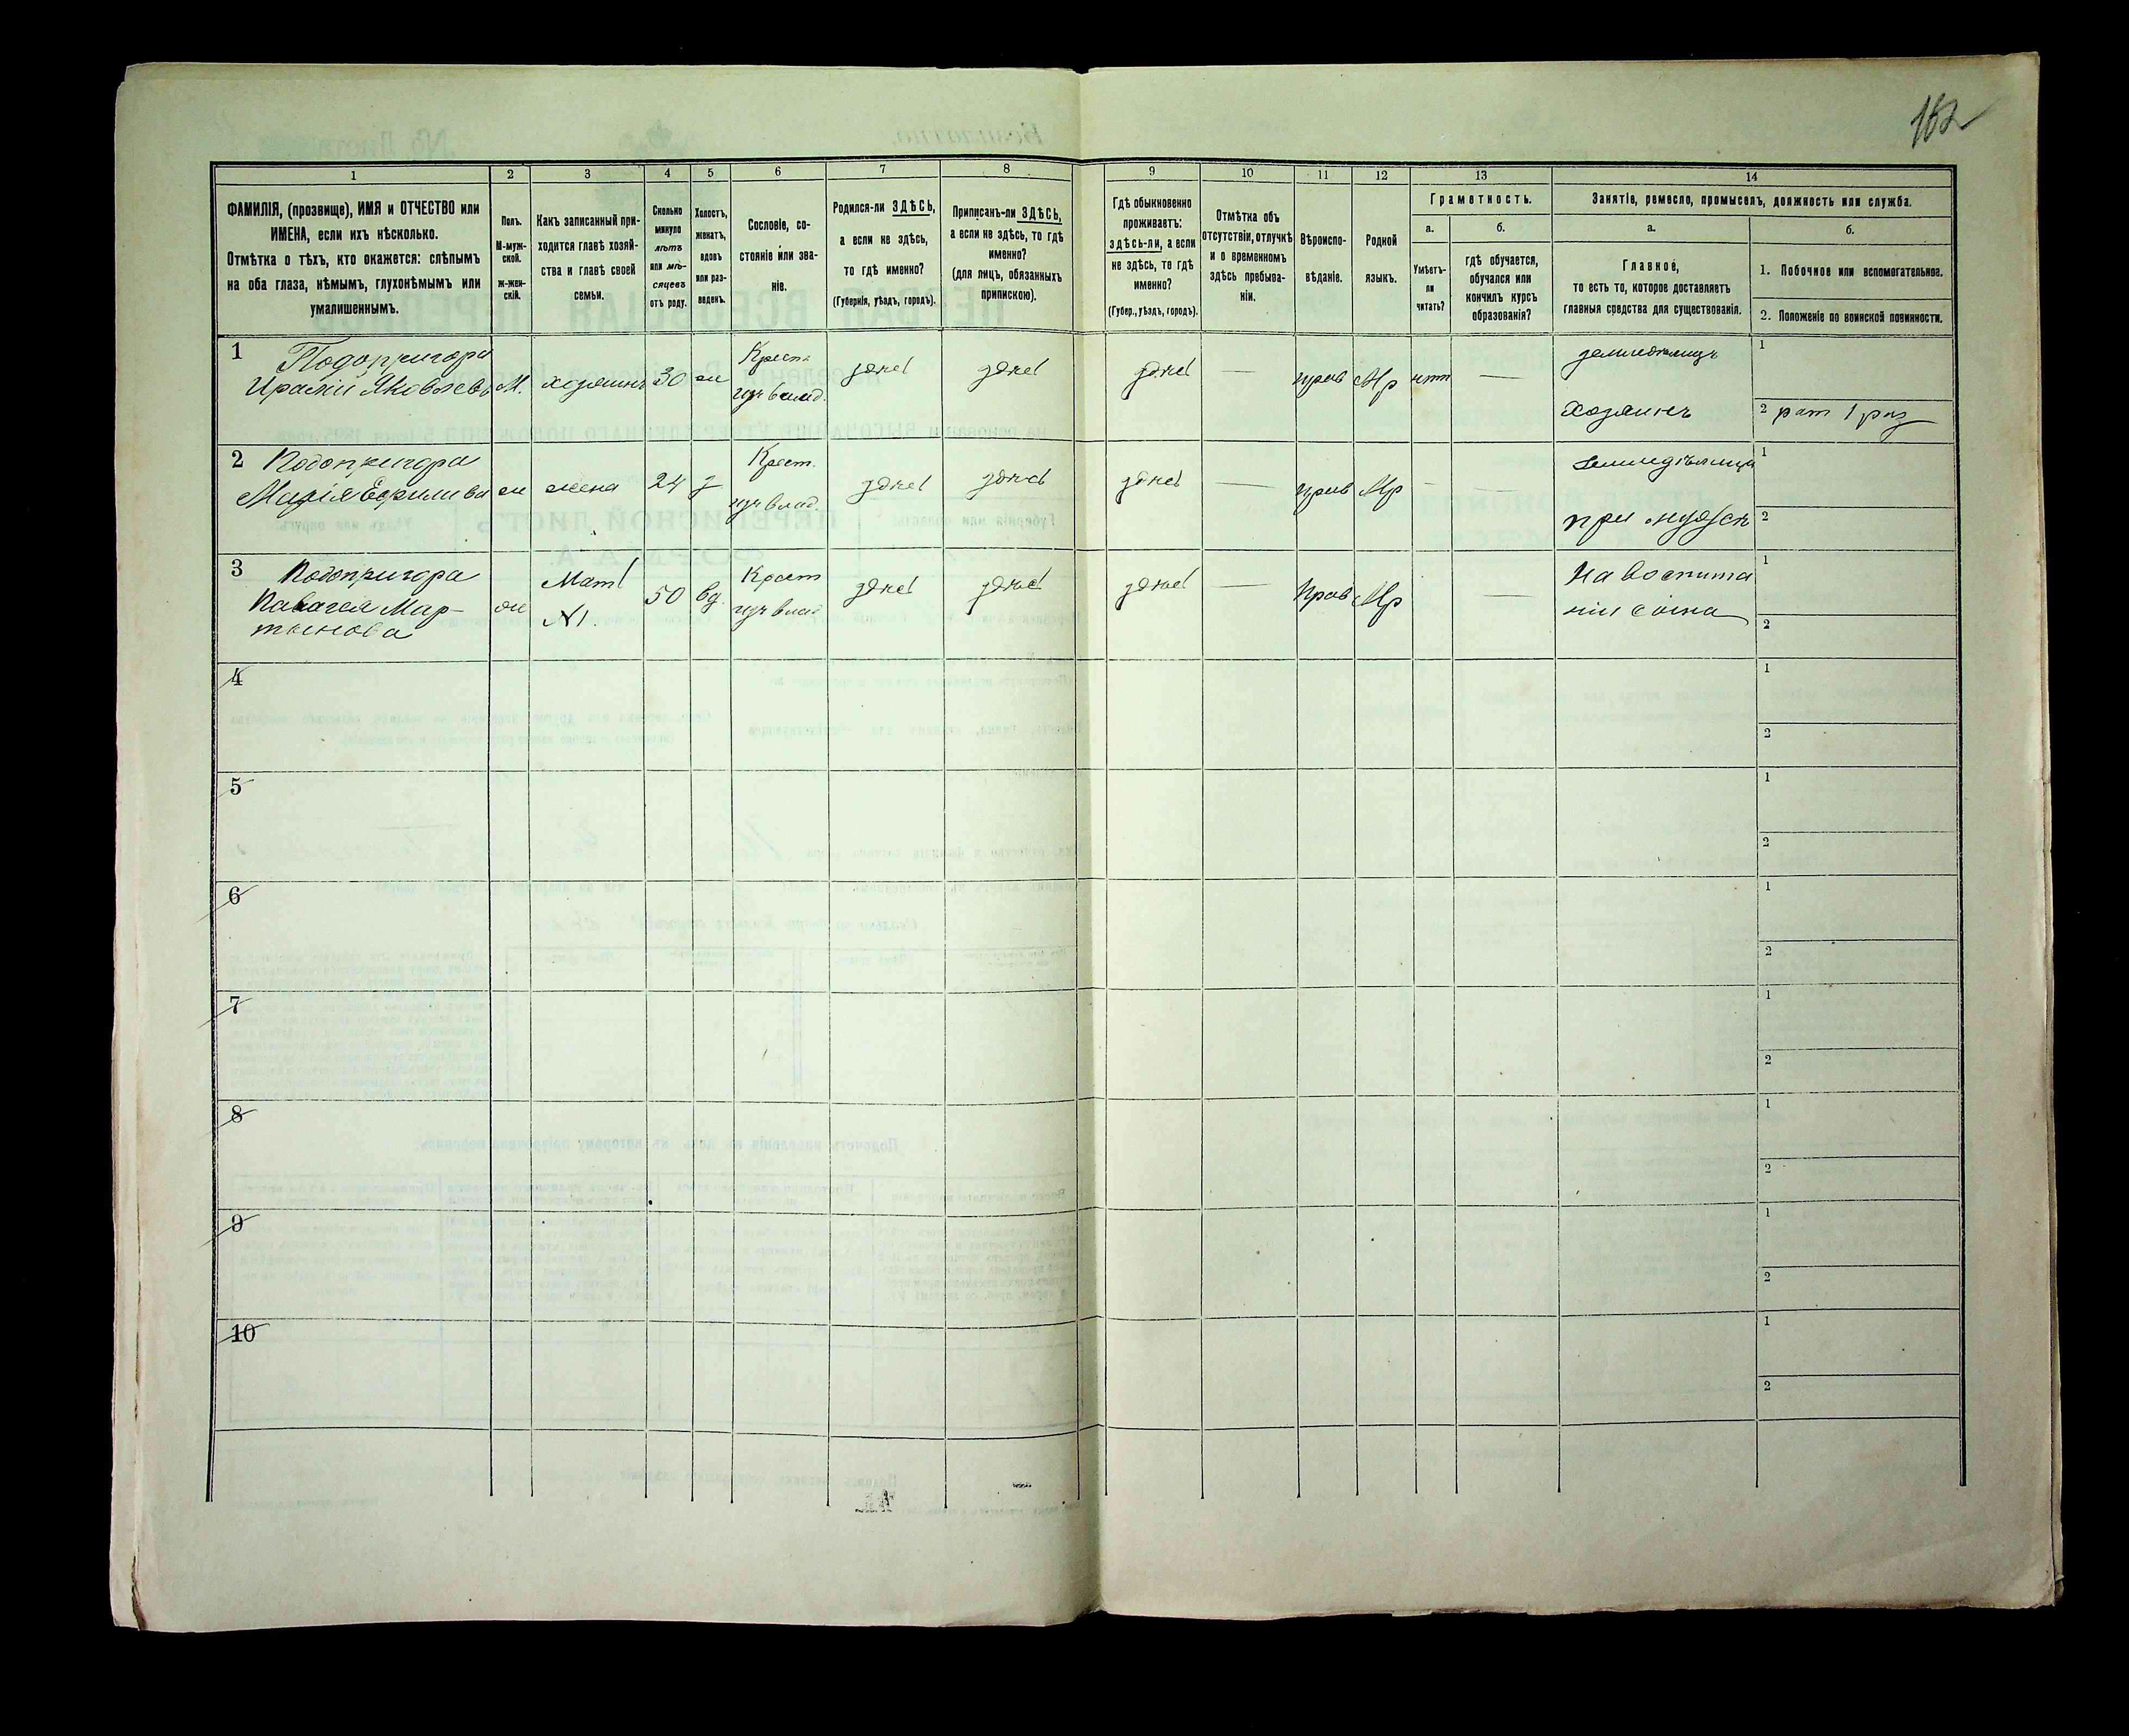 162
1
2
3
4
5
6
7
8
9
10
11
12
13
14
ФАМИЛІЯ, (прозвище), ИМЯ и ОТЧЕСТВО или
ИМЕНА, если ихъ нѣсколько.
Отмѣтка о тѣхъ, кто окажется: слѣпымъ
на оба глаза, нѣмымъ, глухонѣмымъ или
умалишеннымъ.
Полъ.
М-муж-
ской.
ж-жен-
скій.
Какъ записанный при-
ходится главѣ хозяй-
ства и главѣ своей
семьи.
Сколько
минуло
лѣтъ
или мѣ-
сяцевъ
отъ роду.
Холостъ,
женатъ,
вдовъ
или раз-
веденъ.
Сословіе, со-
стояніе или зва-
ніе.
Родился-ли ЗДѢСЬ,
а если не здѣсь,
то гдѣ именно?
(Губернія, уѣздъ, городъ).
Приписанъ-ли ЗДѢСЬ,
а если не здѣсь, то гдѣ
именно?
(для лицъ, обязанныхъ
припискою).
Гдѣ обыкновенно
проживаетъ:
здѣсь-ли, а если
не здѣсь, то гдѣ
именно?
(Губер., уѣздъ, городъ).
Отмѣтка объ
отсутствіи, отлучкѣ
и о временномъ
здѣсь пребыва-
ніи.
Вѣроиспо-
вѣданіе.
Родной
языкъ.
Грамотность.
а.
б.
Умѣетъ-
ли
читать?
гдѣ обучается,
обучался или
кончилъ курсъ
образованія?
Занятіе, ремесло, промыселъ, должность или служба.
а.
б.
Главное,
то есть то, которое доставляетъ
главныя средства для существованія.
1. Побочное или вспомогательное.
2. Положеніе по воинской повинности.
1
Подопригора
Яковлевъ
М.
хозяинъ
30
ж
Крест
изъ влад.
здѣсь
здѣсь
здѣсь
—
прав
Мр
нѣт
—
земледѣлецъ
Хозяинъ
1
2 рат 1 раз
2
Подопригора
Марія Ефимова
ж
жена
24
з
Крест.
изъ влад.
здѣсь
здѣсь
здѣсь
—
прав
Мр
-
—
Земледѣлица
при мужѣ
1
2
3
Подопригора
Мар-
тынова
ж
Мать
№1.
50
вд.
Крест
изъ влад
здѣсь
здѣсь
здѣсь
—
Прав
Мр
—
На воспита
ніи сына
1
2
4
1
2
5
1
2
6
1
2
7
1
2
8
1
2
9
1
2
10
1
2